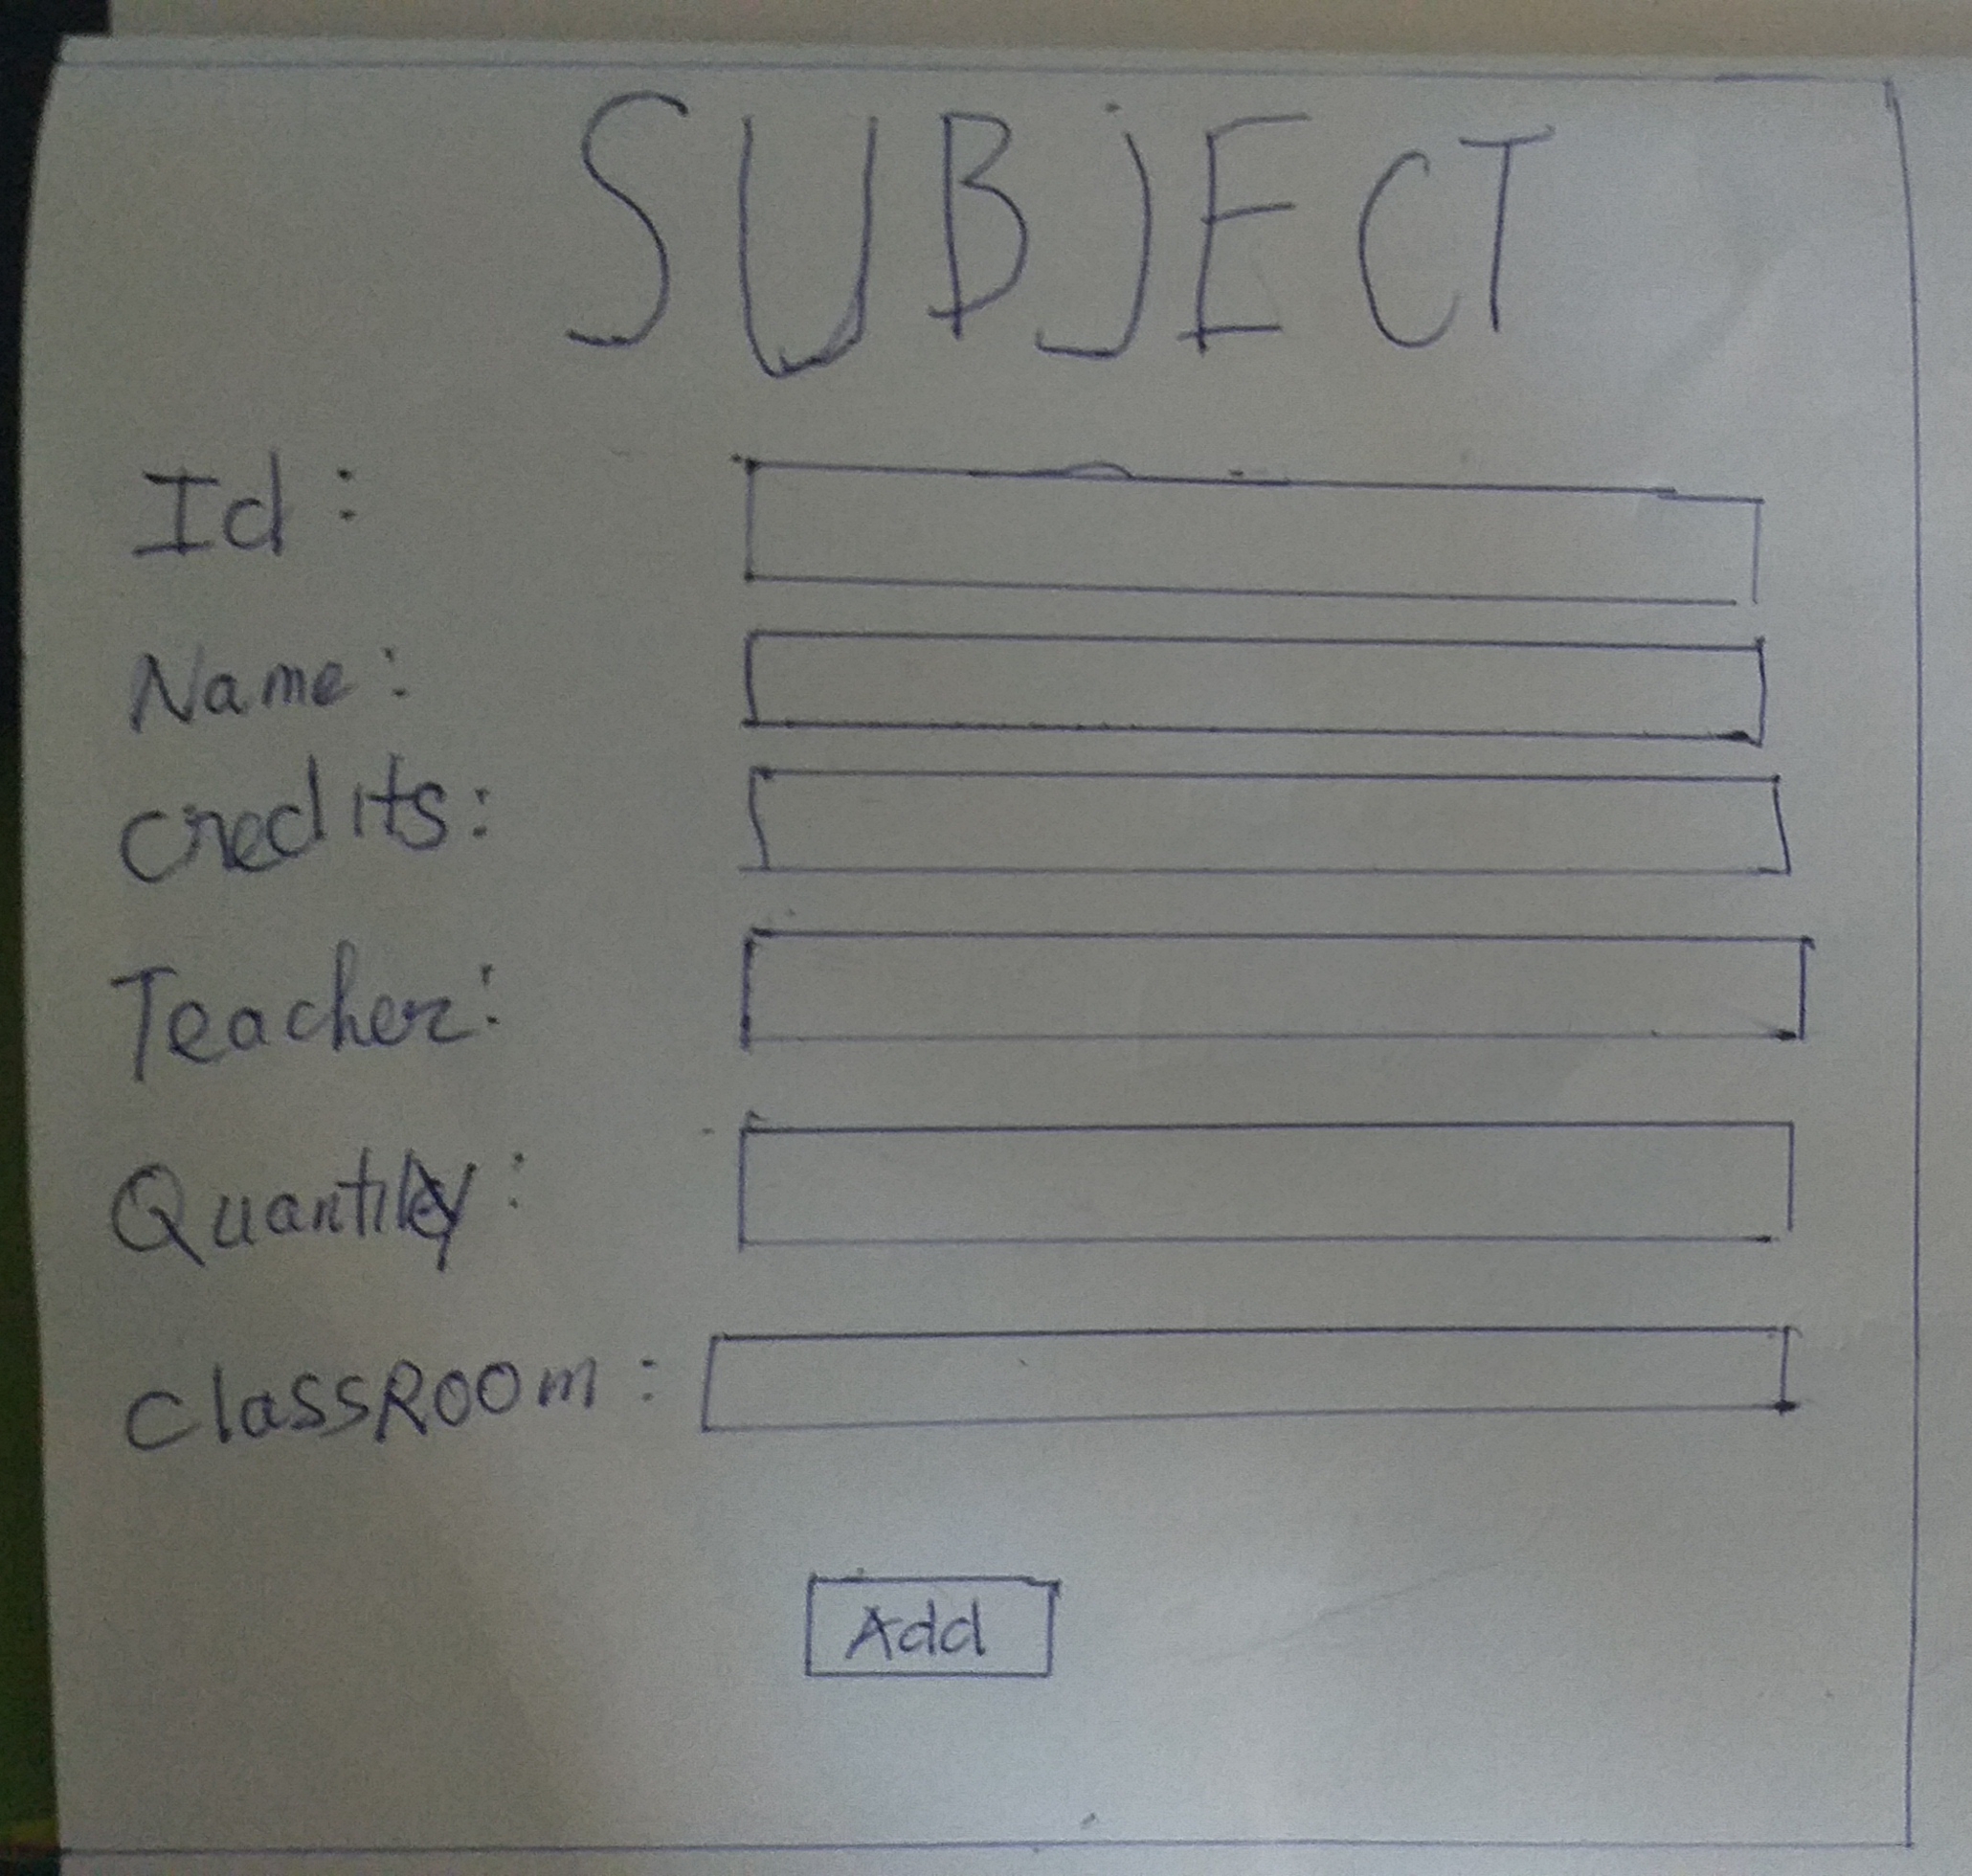 SUBjECT
Id :
Name :
credits :
Teacher :
Quantity :
classRoom :
Add